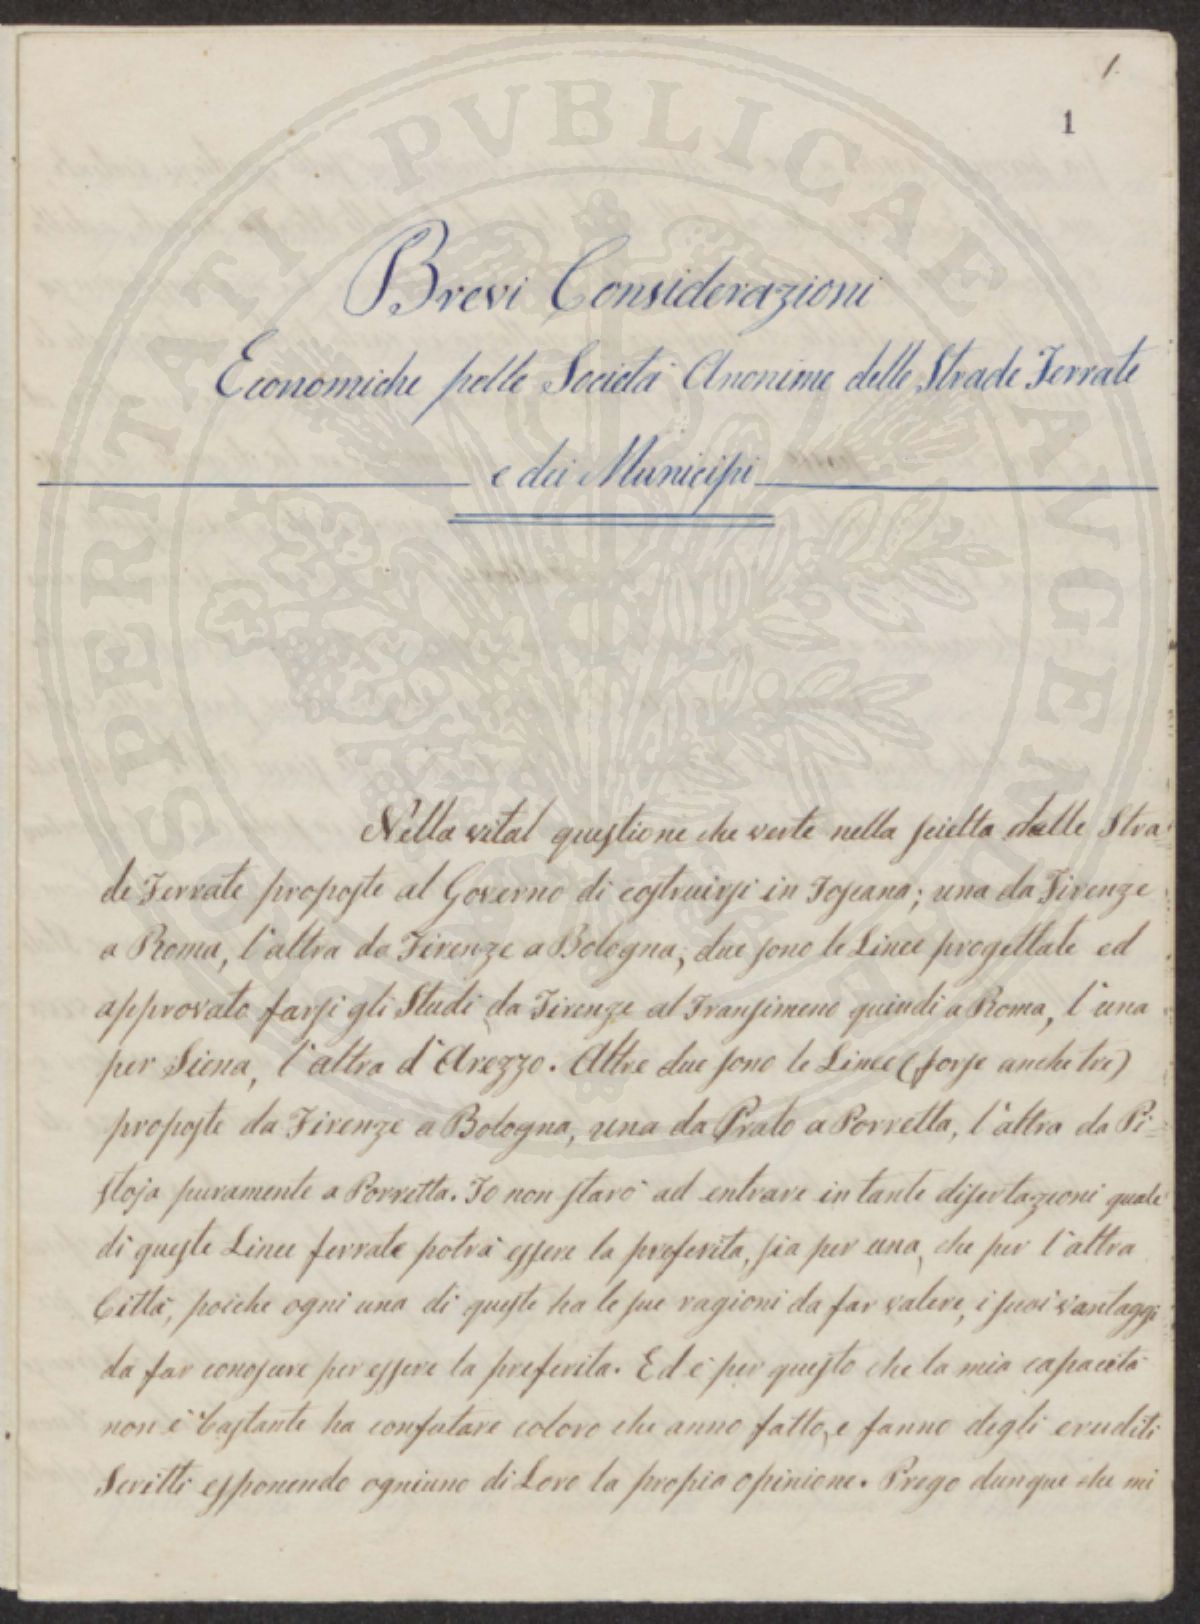 1.
1
Brevi Considerazioni
Economiche pelle Società Anonime delle Strade Ferrate
e dei Municipi
Nella vital questione che verte nella scielta delle Stra=
de Ferrate proposte al Governo di costruirsi in Toscana; una da Firenze
a Roma, l'altra da Firenze a Bologna; due sono le Linee progettate ed
approvato farsi gli Studi da Firenze al Transimeno quindi a Roma, l'una
per Siena, l'altra d'Arezzo. Altre due sono le Linee (forse anche tre)
proposte da Firenze a Bologna, una da Prato a Porretta, l'altra da Pi=
stoja puramente a Porretta. Io non starò ad entrare in tante disertazioni quale
di queste Linee ferrate potrà essere la preferita, sia per una, che per l'altra
Città, poiche ogni una di queste ha le sue ragioni da far valere, i suoi vantaggi
da far conoscere per essere la preferita. Ed è per questo che la mia capacità
non è bastante ha confutare coloro che anno fatto, e fanno degli eruditi
Scritti esponendo ogniuno di Loro la propia opinione. Prego dunque che mi
PROSPERITATI PVBLICAE AVGENDAE